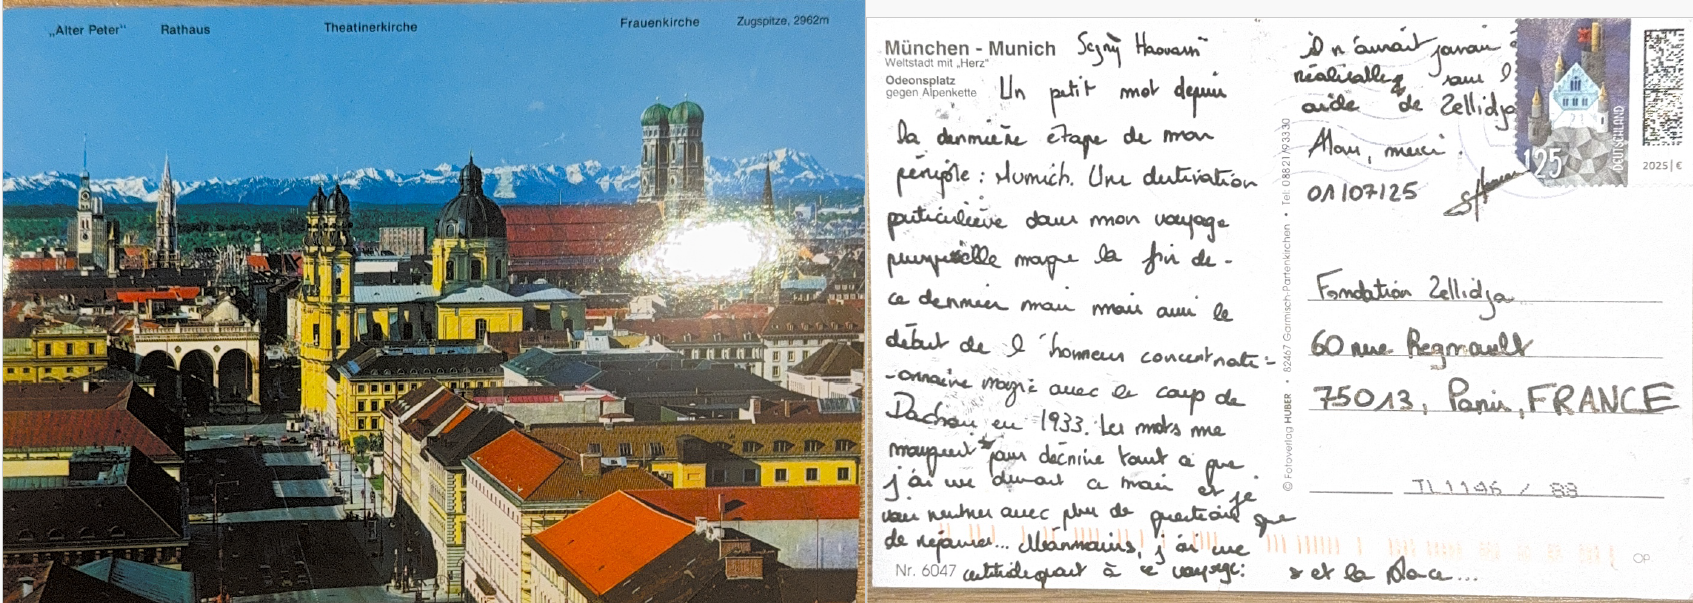 „Alter Peter“
Rathaus
Theatinerkirche
Frauenkirche
Zugspitze, 2962m
München - Munich
Weltstadt mit „Herz“
Odeonsplatz
gegen Alpenkette
Un petit mot depuis
la dernière étape de mon
périple : Munich. Une destination
particulière dans mon voyage
puisqu'elle marque la fin de
ce dernier mais mais aussi le
début de l'horreur concentratio-
-onnaire nazie avec le camp de
Dachau en 1933. Les mots me
manquent * pour décrire tout ce que
j'ai vu durant ce mois et je
vais rentrer avec plus de questions que
de réponses... Néanmoins, j'ai une
certitude quant à ce voyage:
* et la place...
il n'aurait jamais
réalisable sans l
aide de Zellidja
Alors, merci !
01/07/25
DEUTSCHLAND
125
2025 | €
© Fotoverlag HUBER • 82467 Garmisch-Partenkirchen • Tel. 08821/93330
Fondation Zellidja
60 rue Regnault
75013, Paris, FRANCE
Nr. 6047